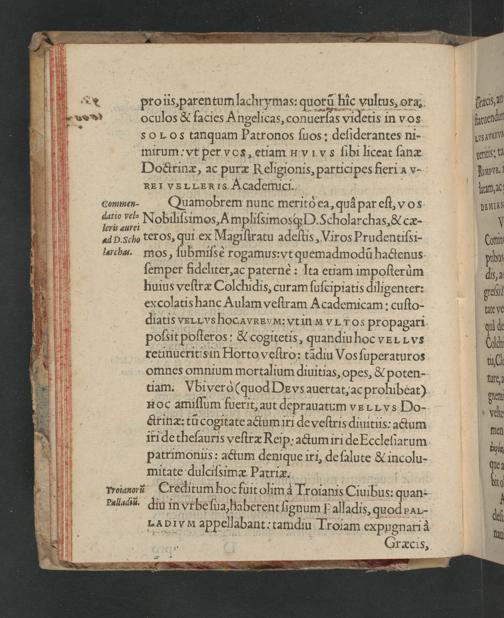 pro iis, parentum lachrymas: quorũ hîc vultus, ora,
oculos & facies Angelicas, conuersas videtis in VOS
SOLOS tanquam Patronos suos: desiderantes ni-
mirum: vt per VOS, etiam HVIVS sibi liceat sanæ
Doctrinæ, ac puræ Religionis, participes fieri AV-
REI VELLERIS Academici.
Commen-
datio vel-
leris aurei
ad D. Scho
larchas.
Quamobrem nunc meritò ea, quâ par est, VOS
Nobilissimos, Amplissimosq; D. Scholarchas, & cæ-
teros, qui ex Magistratu adestis, Viros Prudentissi-
mos, submissè rogamus: vt quemadmodũ hactenus
semper fideliter, ac paternè: Ita etiam imposterùm
huius vestræ Colchidis, curam suscipiatis diligenter:
excolatis hanc Aulam vestram Academicam: custo-
diatis VELLVS hoc AVREVM: vt in MVLTOS propagari
possit posteros: & cogitetis, quandiu hoc VELLVS
retinueritis in Horto vestro: tãdiu Vos superaturos
omnes omnium mortalium diuitias, opes, & poten-
tiam. Vbi verò (quod DEVS auertat, ac prohibeat)
HOC amissum fuerit, aut deprauatum VELLVS Do-
ctrinæ: tũ cogitate actum iri de vestris diuitiis: actum
iri de thesauris vestræ Reip: actum iri de Ecclesiarum
patrimoniis: actum denique iri, de salute & incolu-
mitate dulcissimæ Patriæ.
Troianorũ
Palladiũ.
Creditum hoc fuit olim à Troianis Ciuibus: quan-
diu in vrbe sua, haberent signum Palladis, quod PAL-
LADIVM appellabant: tamdiu Troiam expugnari à
Græcis,